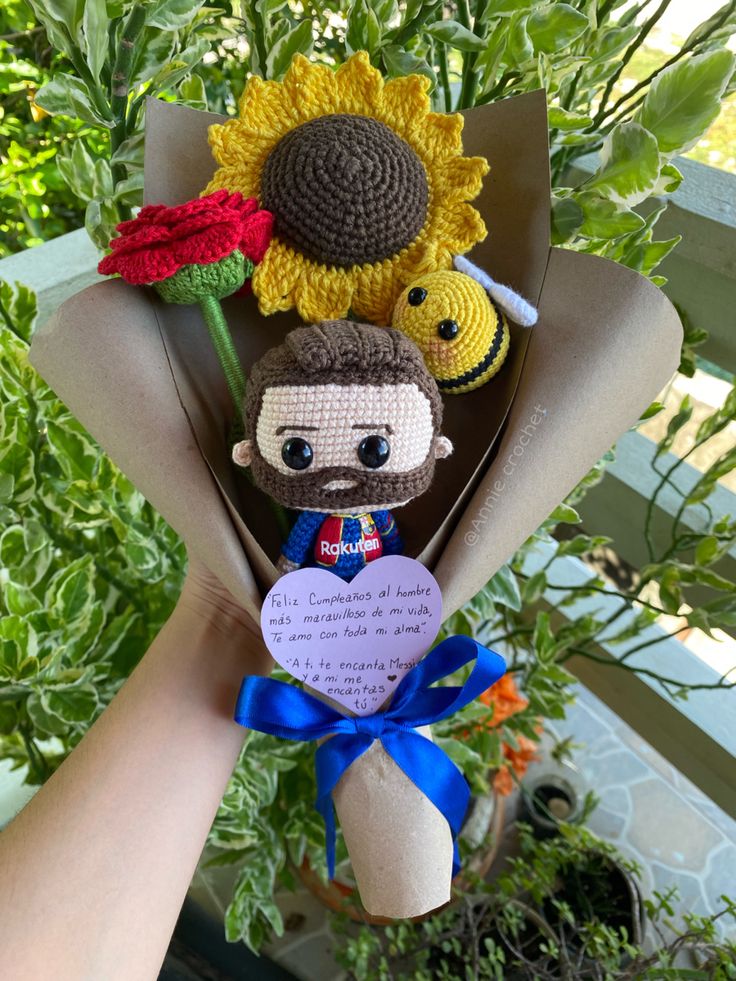 @Annie.crochet
Rakuten
"Feliz Cumpleaños al hombre
más maravilloso de mi vida,
Te amo con toda mi alma".
"A ti te encanta Messi
y a mi me
encantas
tú"